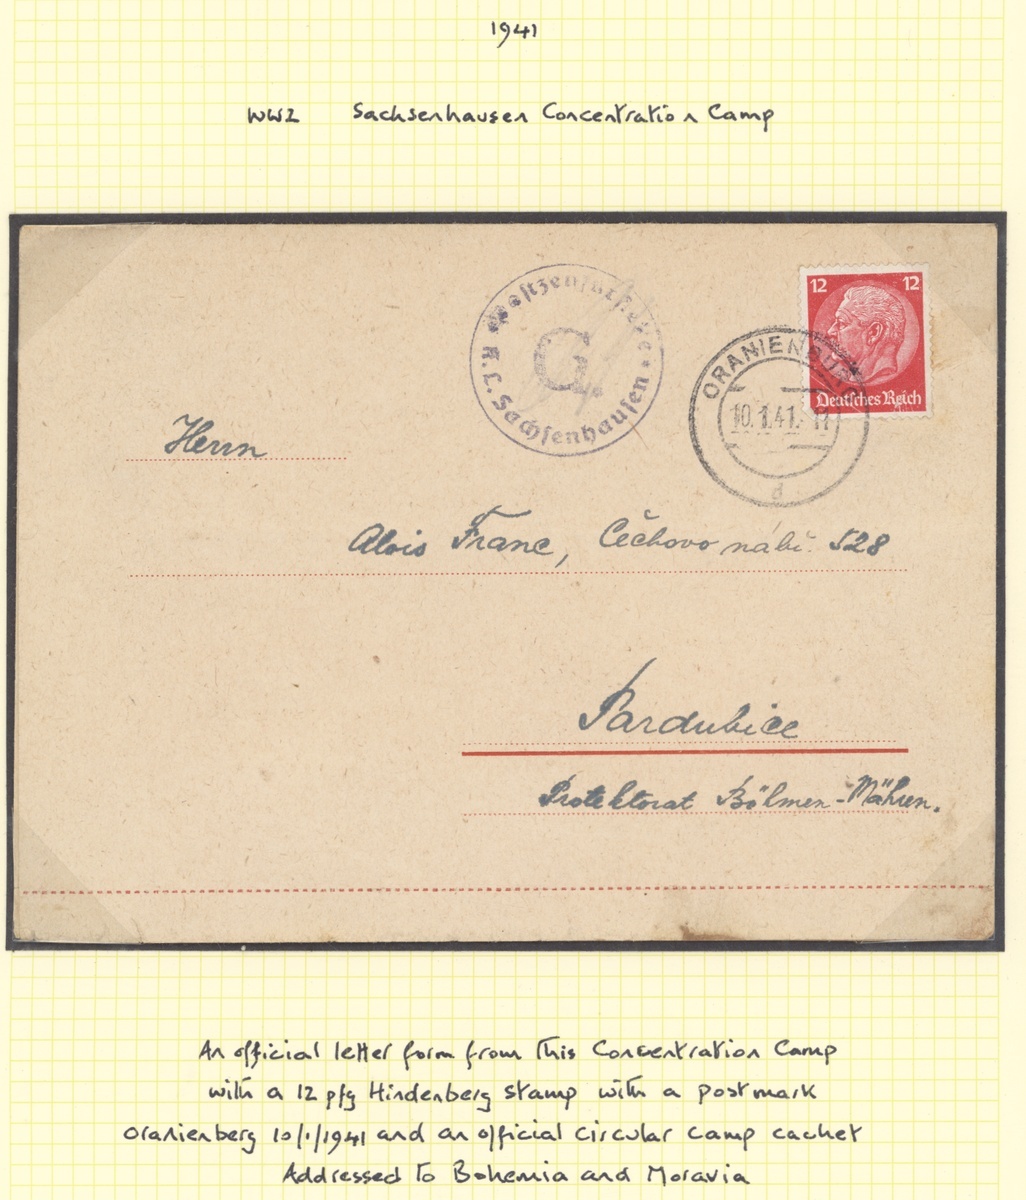 1941
WW2 Sachsenhausen Concentration Camp
12 12
Deutsches Reich
Postzensurstelle
G.
K. L. Sachsenhausen
ORANIENBURG
10.1.41.
d
Herrn
Alois Franc, Čechovo nábř. 528
Pardubice
Protektorat Böhmen-Mähren.
An official letter form from this Concentration Camp
with a 12 pfg Hindenberg stamp with a postmark
Oranienberg 10/1/1941 and an official circular camp cachet
Addressed to Bohemia and Moravia